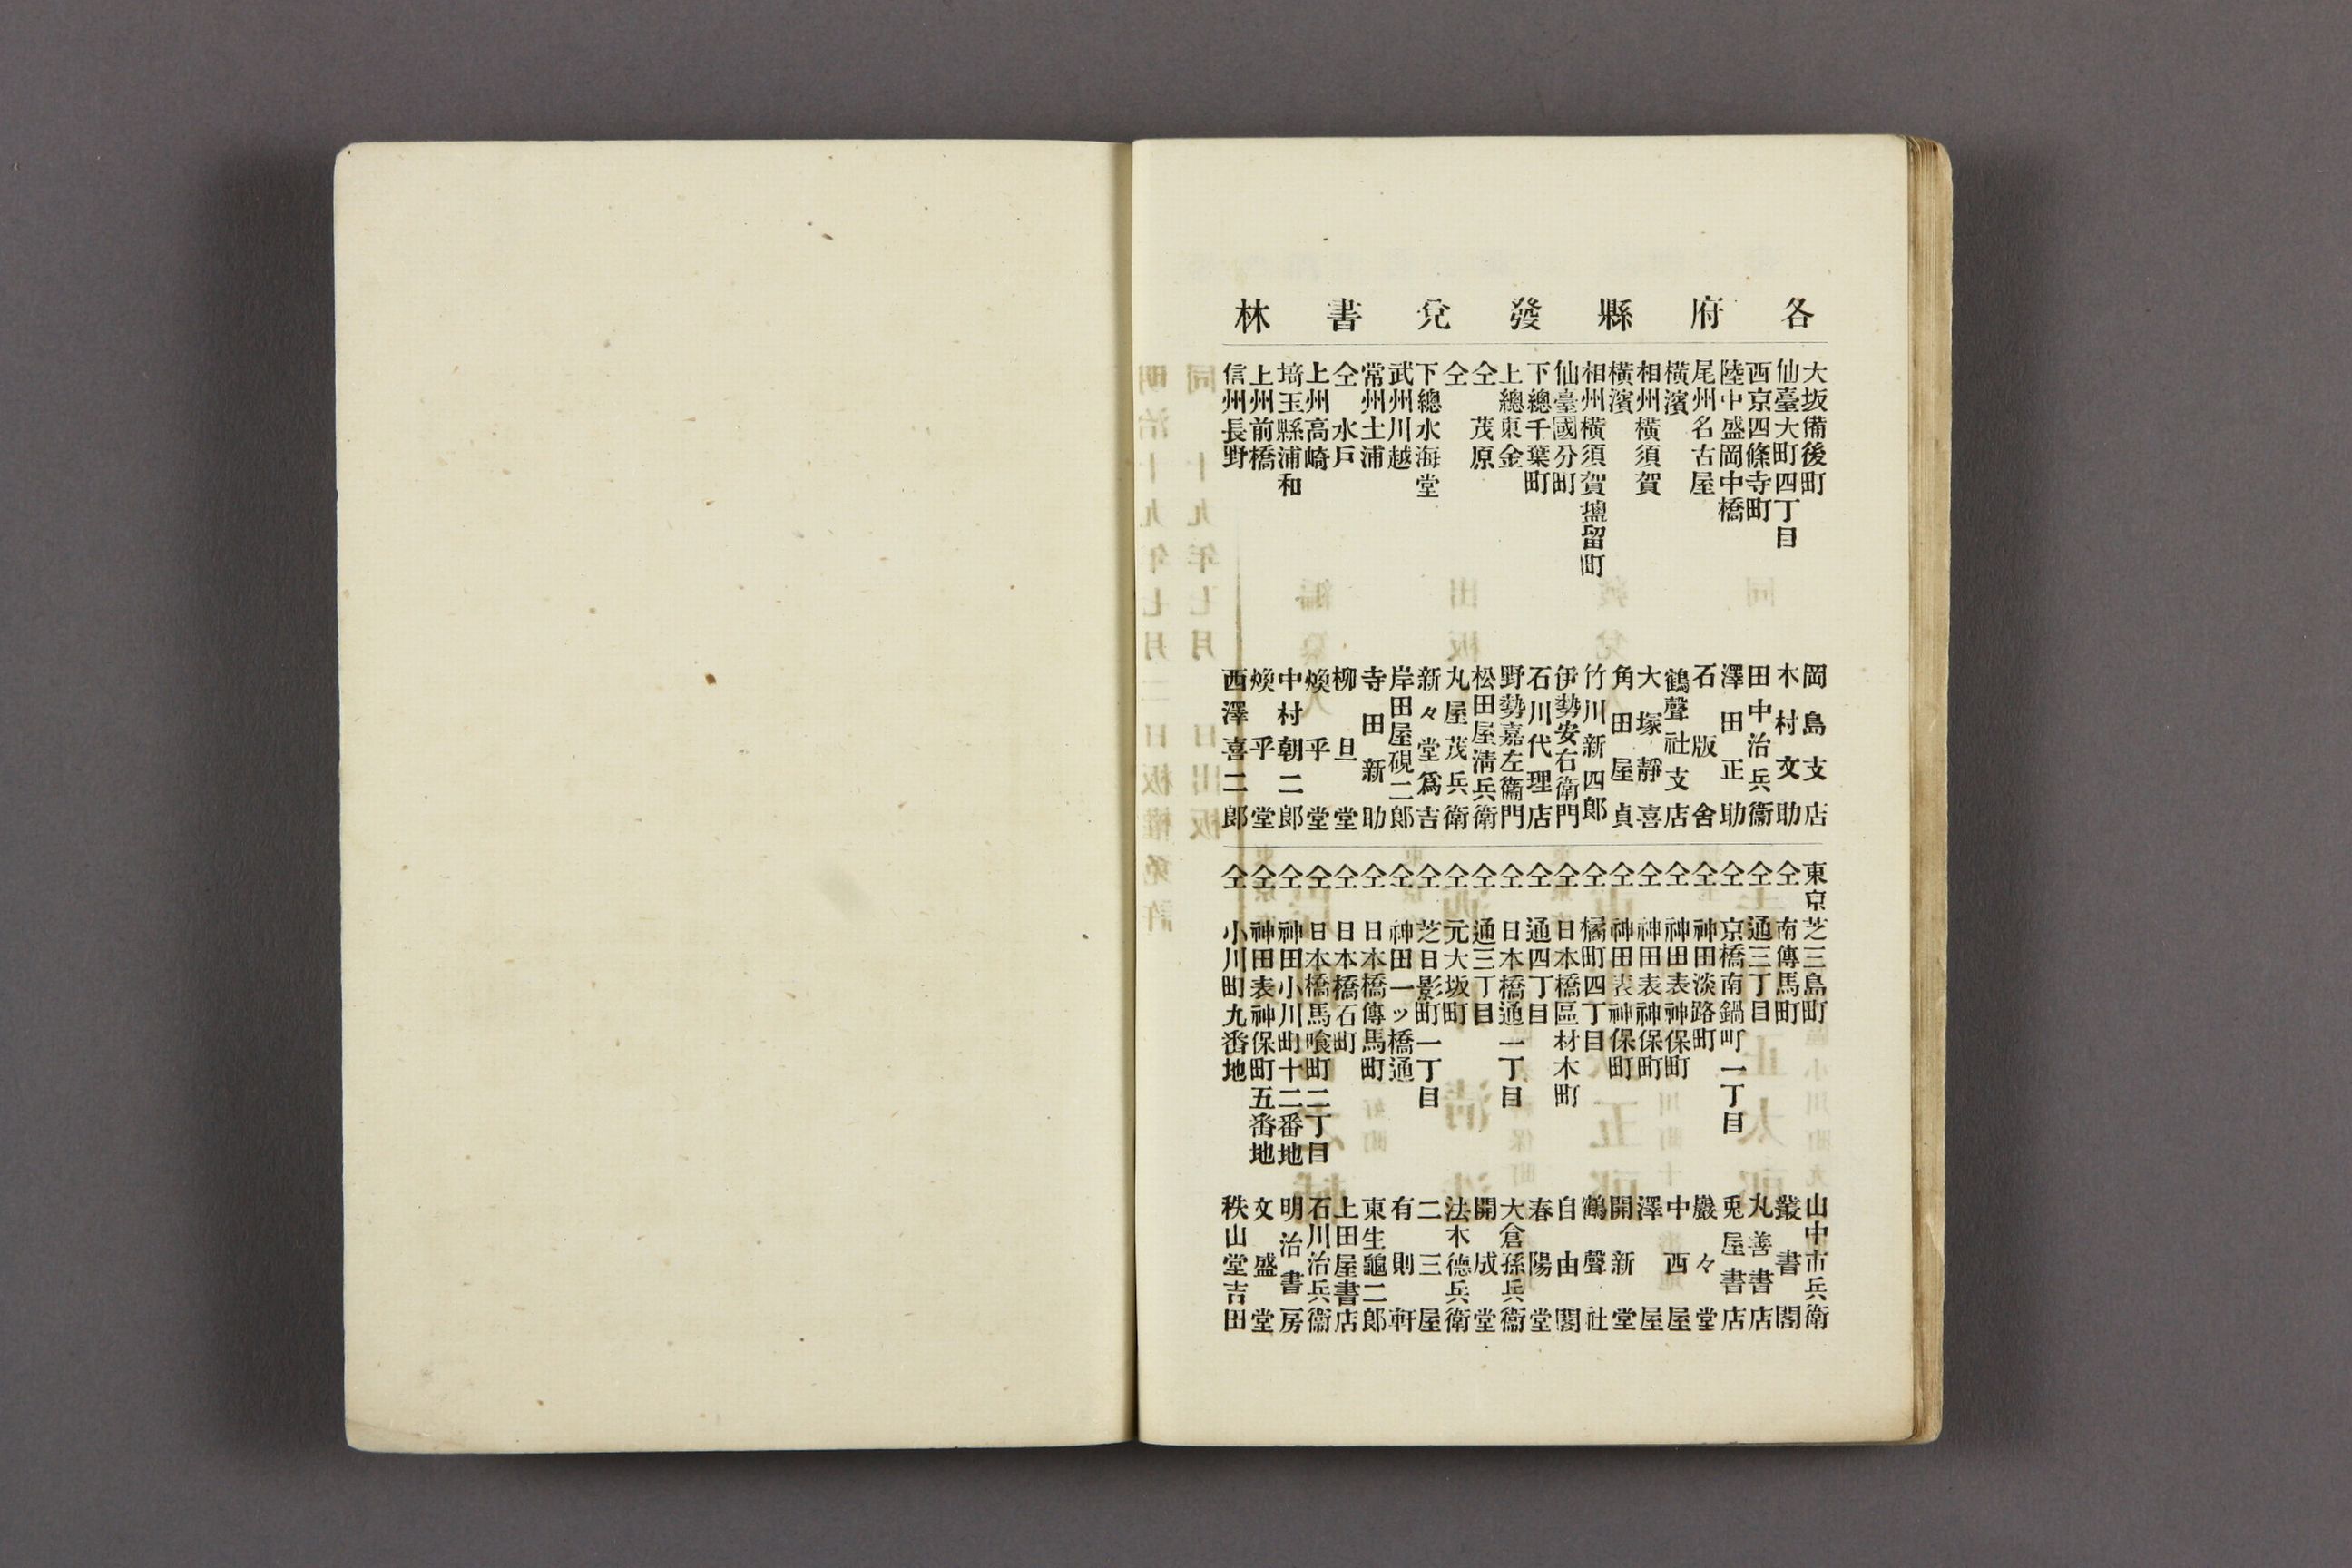 各府縣發兌書林
大坂備後町 岡島支店
仙臺大町四丁目 木村文助
西京四條寺町 田中治兵衞
陸中盛岡中橋 澤田正助
尾州名古屋 石版舍
橫濱 鶴聲社支店
相州橫須賀 大塚靜喜
橫濱 角田屋貞
相州橫須賀塩留町 竹川新四郎
仙臺國分町 伊勢安右衛門
下總千葉町 石川代理店
上總東金 野勢嘉左衞門
仝 茂原 松田屋淸兵衛
仝 丸屋茂兵衛
下總水海堂 新々堂爲吉
武州川越 岸田屋硯二郎
常州土浦 寺田新助
仝 水戶 柳旦堂
上州高崎 煥乎堂
埼玉縣浦和 中村朝二郎
上州前橋 煥乎堂
信州長野 西澤喜二郎
東京芝三島町 山中市兵衛
仝 南傳馬町 叢書閣
仝 通三丁目 丸善書店
仝 京橋南鍋町一丁目 兎屋書店
仝 神田淡路町 巖々堂
仝 神田表神保町 中西屋
仝 神田表神保町 澤屋
仝 神田表神保町 開新堂
仝 橘町四丁目 鶴聲社
仝 日本橋區材木町 自由閣
仝 通四丁目 春陽堂
仝 日本橋通一丁目 大倉孫兵衞
仝 通三丁目 開成堂
仝 元大坂町 法木德兵衛
仝 芝日影町一丁目 二三屋
仝 神田一ッ橋通 有則軒
仝 日本橋傳馬町 東生龜二郎
仝 日本橋石町 上田屋書店
仝 日本橋馬喰町二丁目 石川治兵衞
仝 神田小川町十二番地 明治書房
仝 神田表神保町五番地 文盛堂
仝 小川町九番地 秩山堂吉田